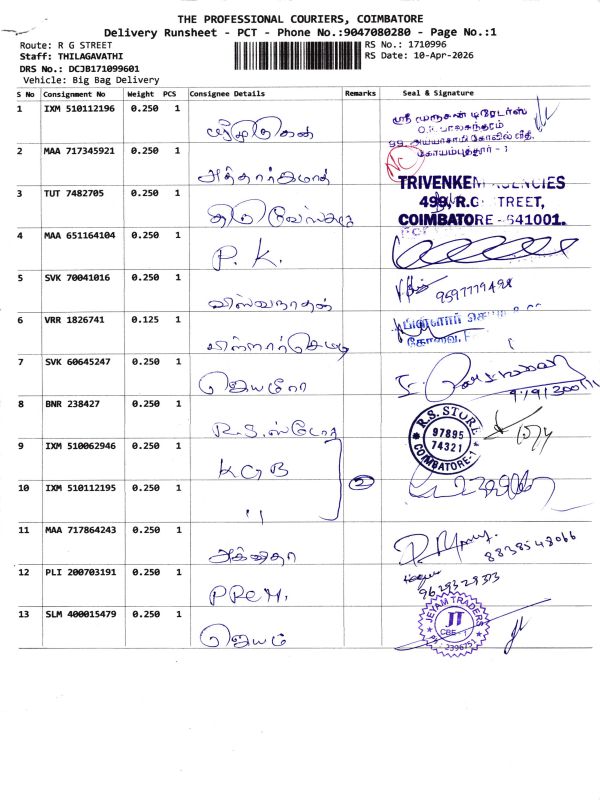 THE PROFESSIONAL COURIERS, COIMBATORE
Delivery Runsheet - PCT - Phone No.:9047080280 - Page No.:1
Route: R G STREET
RS No.: 1710996
Staff: THILAGAVATHI
RS Date: 10-Apr-2026
DRS No.: DCJB171099601
Vehicle: Big Bag Delivery
S No Consignment No Weight PCS Consignee Details Remarks Seal & Signature
1 IXM 510112196 0.250 1
ஸ்ரீ முருகன் டிரேடர்ஸ்
2 MAA 717345921 0.250 1
NC
கோயமுத்தூர் - 1
3 TUT 7482705 0.250 1
TRIVENKEM AGENCIES
499, R.G. STREET,
COIMBATORE - 641001.
4 MAA 651164104 0.250 1 P. K.
5 SVK 70041016 0.250 1 விஸ்வநாதன்
6 VRR 1826741 0.125 1
7 SVK 60645247 0.250 1 ஜெயஸ்ரீ
8 BNR 238427 0.250 1 R.S. ஸ்டோர்
R.S. STORE
97895
74321
COIMBATORE-1
9 IXM 510062946 0.250 1 KGB
10 IXM 510112195 0.250 1 " 2
11 MAA 717864243 0.250 1
8838548066
12 PLI 200703191 0.250 1 PREM.
9629329373
13 SLM 400015479 0.250 1 ஜெயம்
JEYAM TRADERS
JT
CBE - 1
PH: 2396751